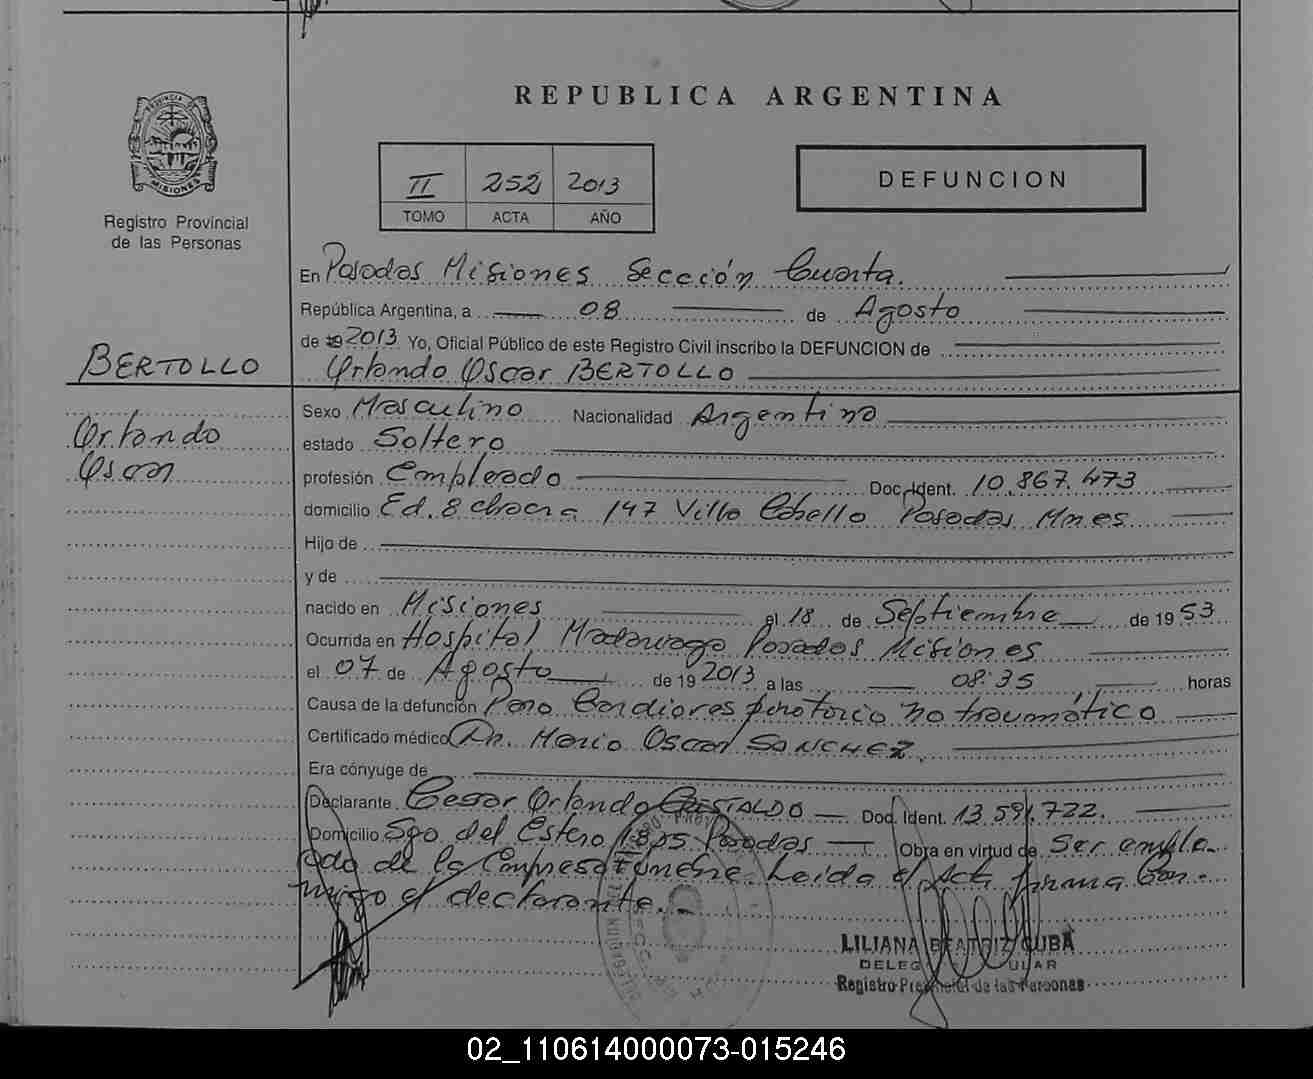 REPUBLICA ARGENTINA
PROVINCIA DE
MISIONES
Registro Provincial
de las Personas
II 252 2013
TOMO ACTA AÑO
DEFUNCION
En Posadas Misiones Sección Cuarta.
República Argentina, a 08 de Agosto
de 19 2013 Yo, Oficial Público de este Registro Civil inscribo la DEFUNCION de
BERTOLLO
Orlando Oscar BERTOLLO
Orlando
Oscar
Sexo Masculino Nacionalidad Argentina
estado Soltero
profesión Empleado Doc. Ident. 10.867.473
domicilio Ed. 8 chacra 147 Villa Cabello Posadas Mnes
Hijo de
y de
nacido en Misiones el 18 de Septiembre de 19 53
Ocurrida en Hospital Madariaga Posadas Misiones
el 07 de Agosto de 19 2013 a las 08:35 horas
Causa de la defunción Paro Cardiorespiratorio no traumático
Certificado médico Dr. Mario Oscar SANCHEZ
Era cónyuge de
Declarante Cesar Orlando GESTALDO Doc. Ident. 13.591.722.
Domicilio Sgo del Estero 1835 Posadas Obra en virtud de Ser emplea
ado de la Empresa Fúnebre. Leida el Acta firma Con-
migo el declarante.
LILIANA BEATRIZ CUBA
Registro Provincial de las Personas
02_110614000073-015246